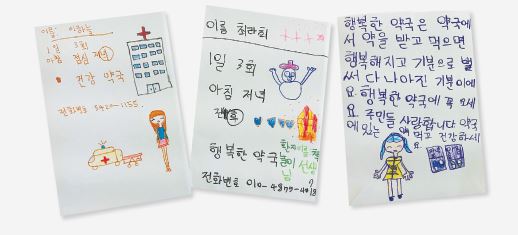 이름:
1일 3회
아침 점심 저녁
건강 약국
전화번호 5420-1155.
이름 최라희
1일 3회
아침 저녁
행복한 약국
전화번호 010-
행복한 약국은 약국에
서 약을 받고 먹으면
행복해지고 기분으로 벌
써 다 나아진 기분이에
요. 행복한 약국에 꼭 오세
요. 주민들 사랑합니다 약국
에 있는 약 먹고 건강하세
요